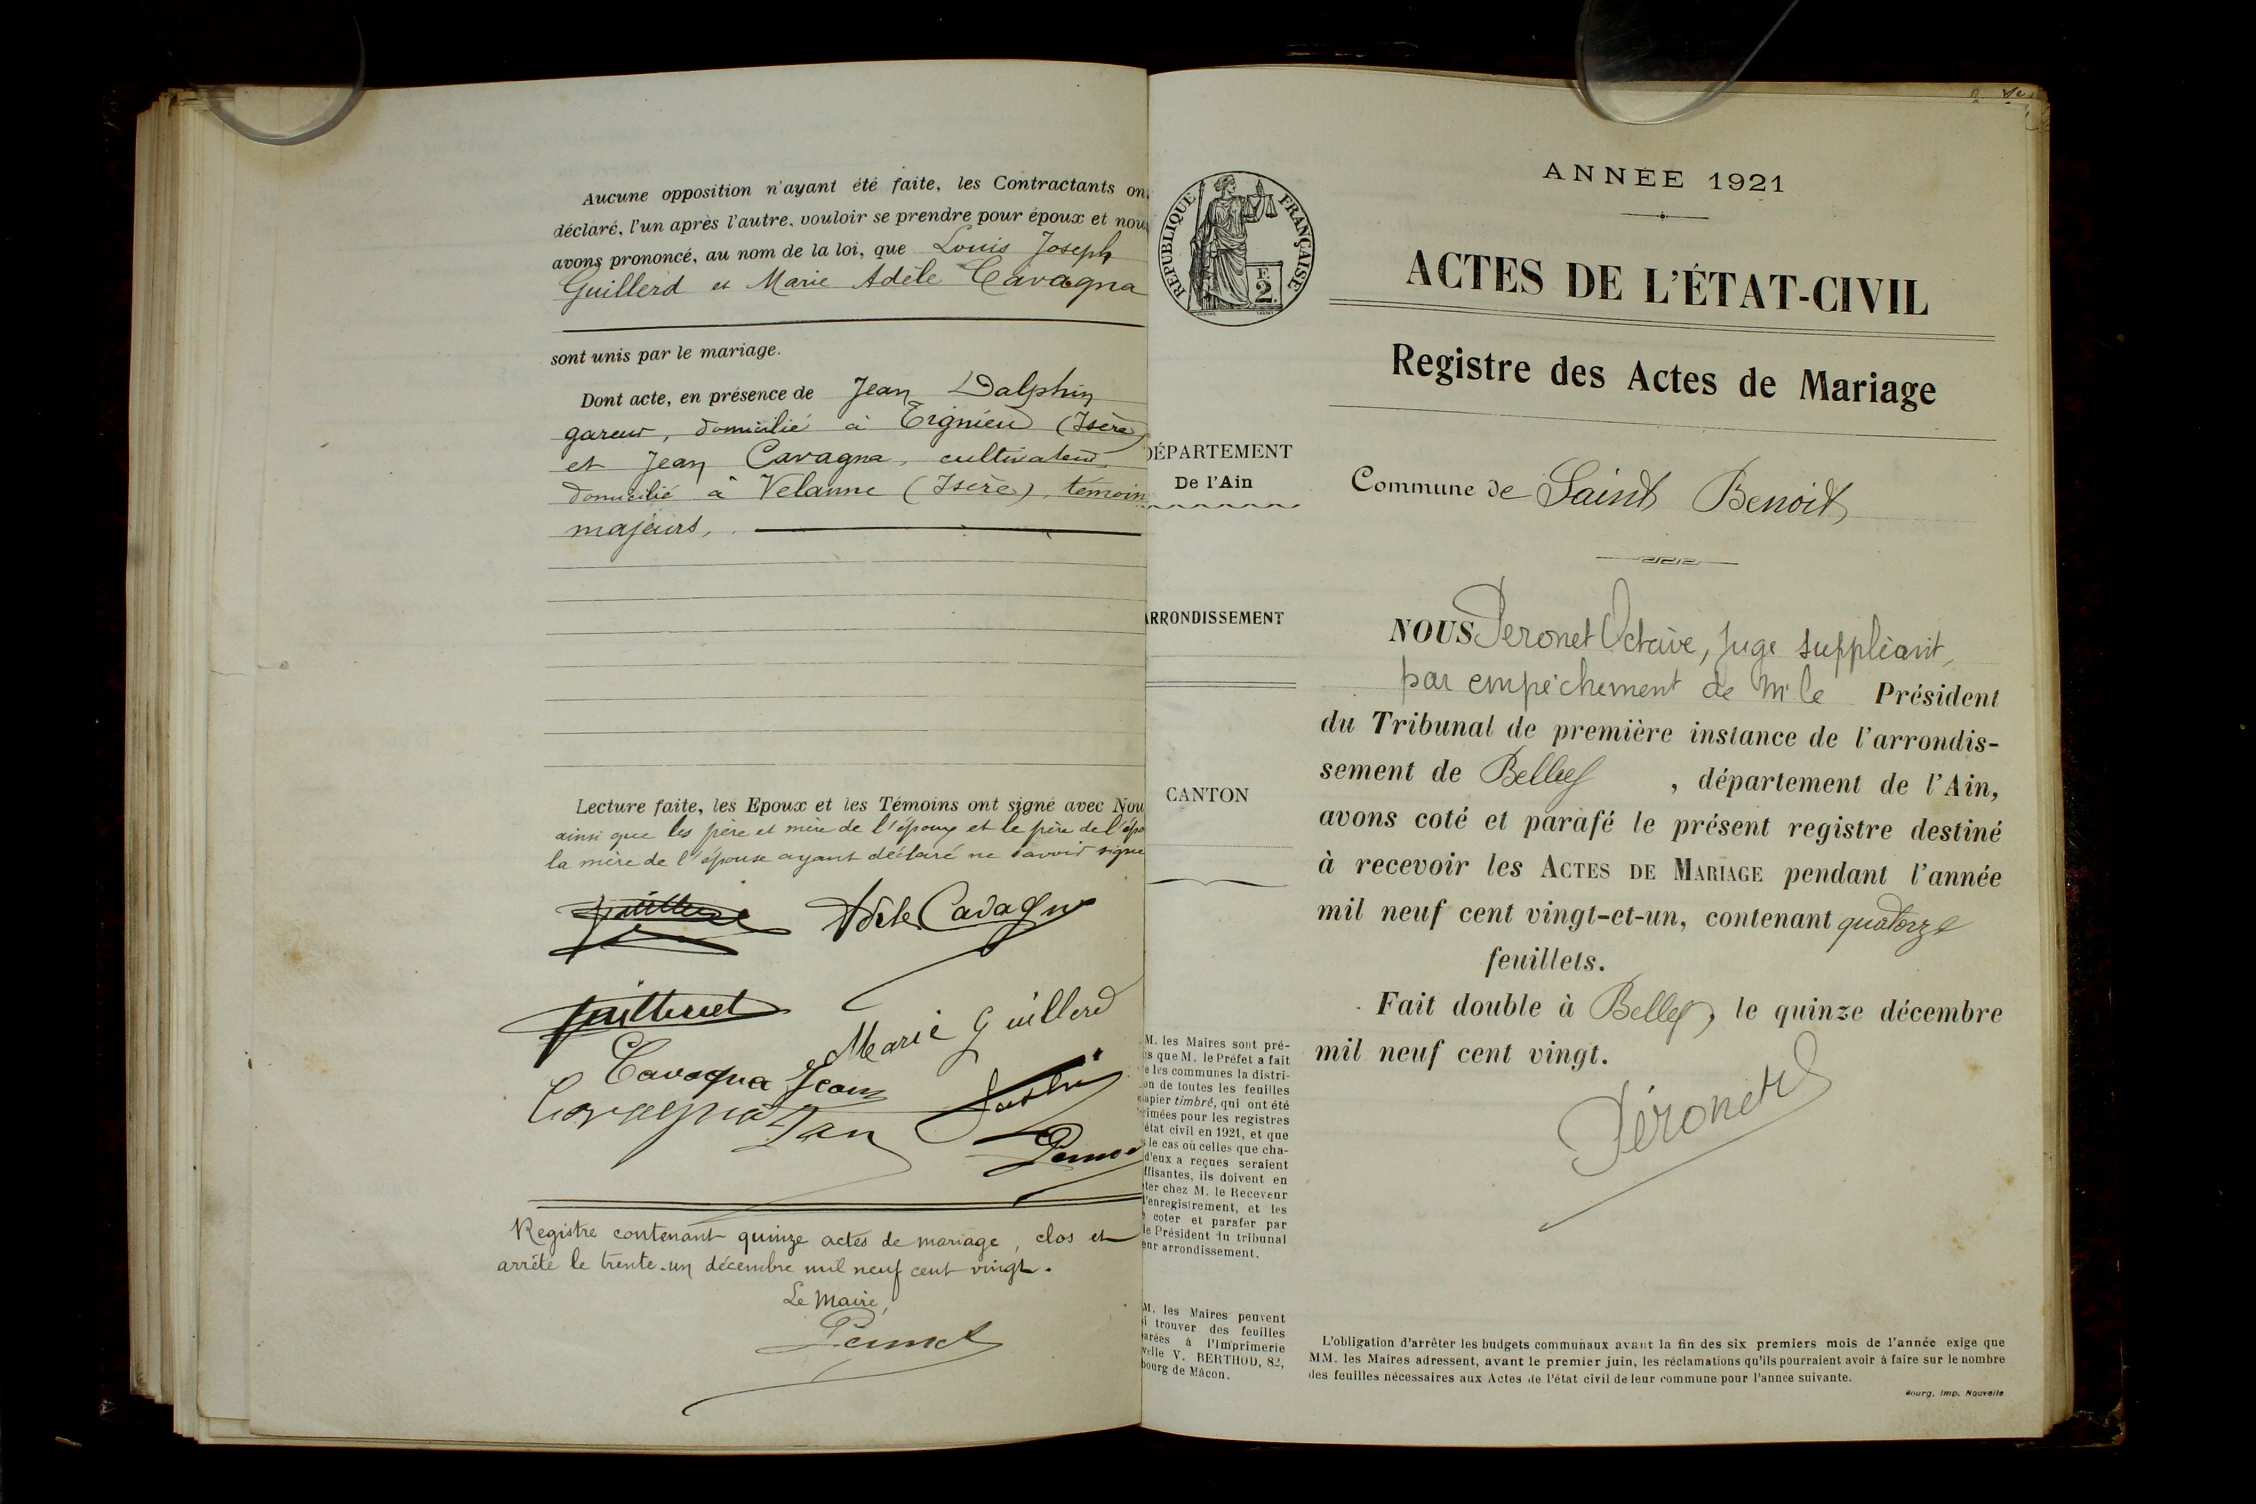 Aucune opposition n'ayant été faite, les Contractants on
déclaré, l'un après l'autre, vouloir se prendre pour époux et nou
avons prononcé, au nom de la loi, que Louis Joseph
Guillerd et Marie Adèle Cavagna
sont unis par le mariage.
Dont acte, en présence de Jean Dalphin
gareur, domicilié à Tignieu (Isère)
et Jean Cavagna, cultivateur,
domicilié à Velanne (Isère), témoin
majeurs,
Lecture faite, les Epoux et les Témoins ont signé avec Nou
ainsi que les père et mère de l'époux et le père de l'épo
la mère de l'épouse ayant déclaré ne savoir signe
Adèle Cavagna
Marie Guillerd
Cavagna Jean
Cavagna Jean
Registre contenant quinze actes de mariage, clos et
arrêté le trente-un décembre mil neuf cent vingt.
Le Maire,
RÉPUBLIQUE FRANÇAISE
F.
2.
DÉPARTEMENT
De l'Ain
ARRONDISSEMENT
CANTON
M. les Maires sont pré-
s que M. le Préfet a fait
e les communes la distri-
on de toutes les feuilles
apier timbré, qui ont été
imées pour les registres
état civil en 1921, et que
s le cas où celles que cha-
d'eux a reçues seraient
ffisantes, ils doivent en
ter chez M. le Receveur
l'enregistrement, et les
coter et parafer par
le Président du tribunal
eur arrondissement.
M. les Maires peuvent
i trouver des feuilles
arées à l'Imprimerie
velle V. BERTHOD, 82,
bourg de Mâcon.
ANNÉE 1921
ACTES DE L'ÉTAT-CIVIL
Registre des Actes de Mariage
Commune de Saint Benoit
NOUS Peronet Octave, Juge suppléant,
par empêchement de Mr le Président
du Tribunal de première instance de l'arrondis-
sement de Belley, département de l'Ain,
avons coté et parafé le présent registre destiné
à recevoir les ACTES DE MARIAGE pendant l'année
mil neuf cent vingt-et-un, contenant quatorze
feuillets.
Fait double à Belley, le quinze décembre
mil neuf cent vingt.
Péronet
L'obligation d'arrêter les budgets communaux avant la fin des six premiers mois de l'année exige que
MM. les Maires adressent, avant le premier juin, les réclamations qu'ils pourraient avoir à faire sur le nombre
des feuilles nécessaires aux Actes de l'état civil de leur commune pour l'année suivante.
Bourg, Imp. Nouvelle